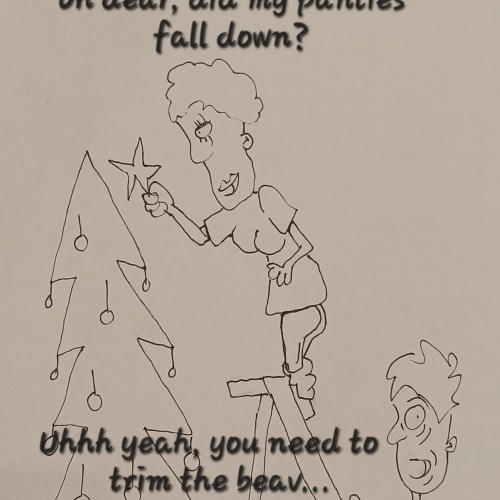 Oh dear, did my panties
fall down?
Uhhh yeah, you need to
trim the beav...